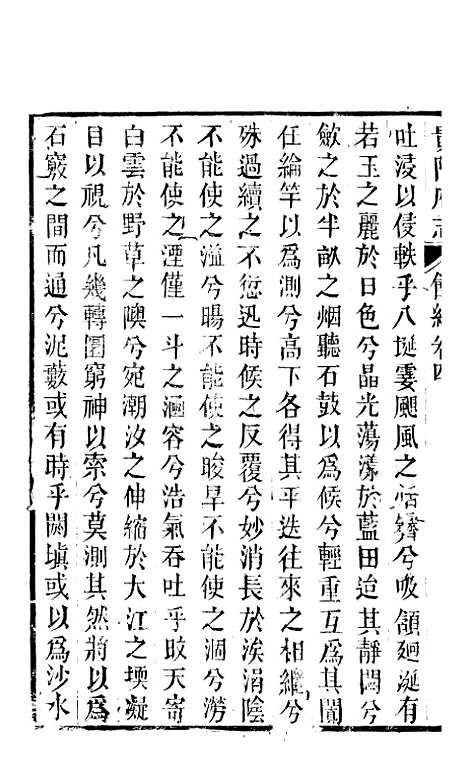 貴陽府志 餘編卷四
吐浸以侵軼乎八埏霎颶風之兮吸頷廻漩有
若玉之麗於日色兮晶光蕩漾於藍田迨其靜閟兮
歛之於半畝之烟聽石鼓以爲候兮輕重互爲其闔
任綸竿以爲測兮高下各得其平迭往來之相繼兮
殊過續之不愆迅時候之反覆兮妙消長於涘涓陰
不能使之溢兮暘不能使之晙旱不能使之涸兮澇
不能使之湮僅一斗之涵容兮浩氣吞吐乎旼天寄
白雲於野草之隩兮宛潮汐之伸縮於大江之堧凝
目以視兮凡幾轉圜窮神以索兮莫測其然將以爲
石竅之間而通兮泥藪或有時乎闕塡或以爲沙水